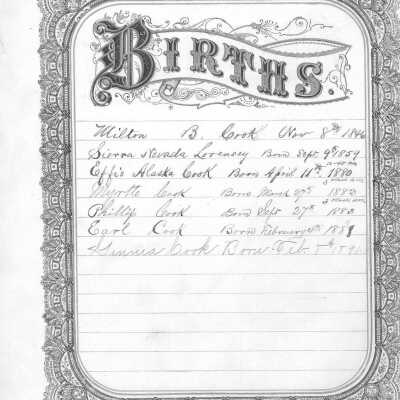 BIRTHS.
Milton B. Cook Nov 8th 1846
Sierra Nevada Born Sept 9th 1859
Effie Alaska Cook Born April 11th 1880
Myrtle Cook Born March 27th 1882
Phillip Cook Born Sept 27th 1883
Earl Cook Born February 1889
Cook Born Feb.